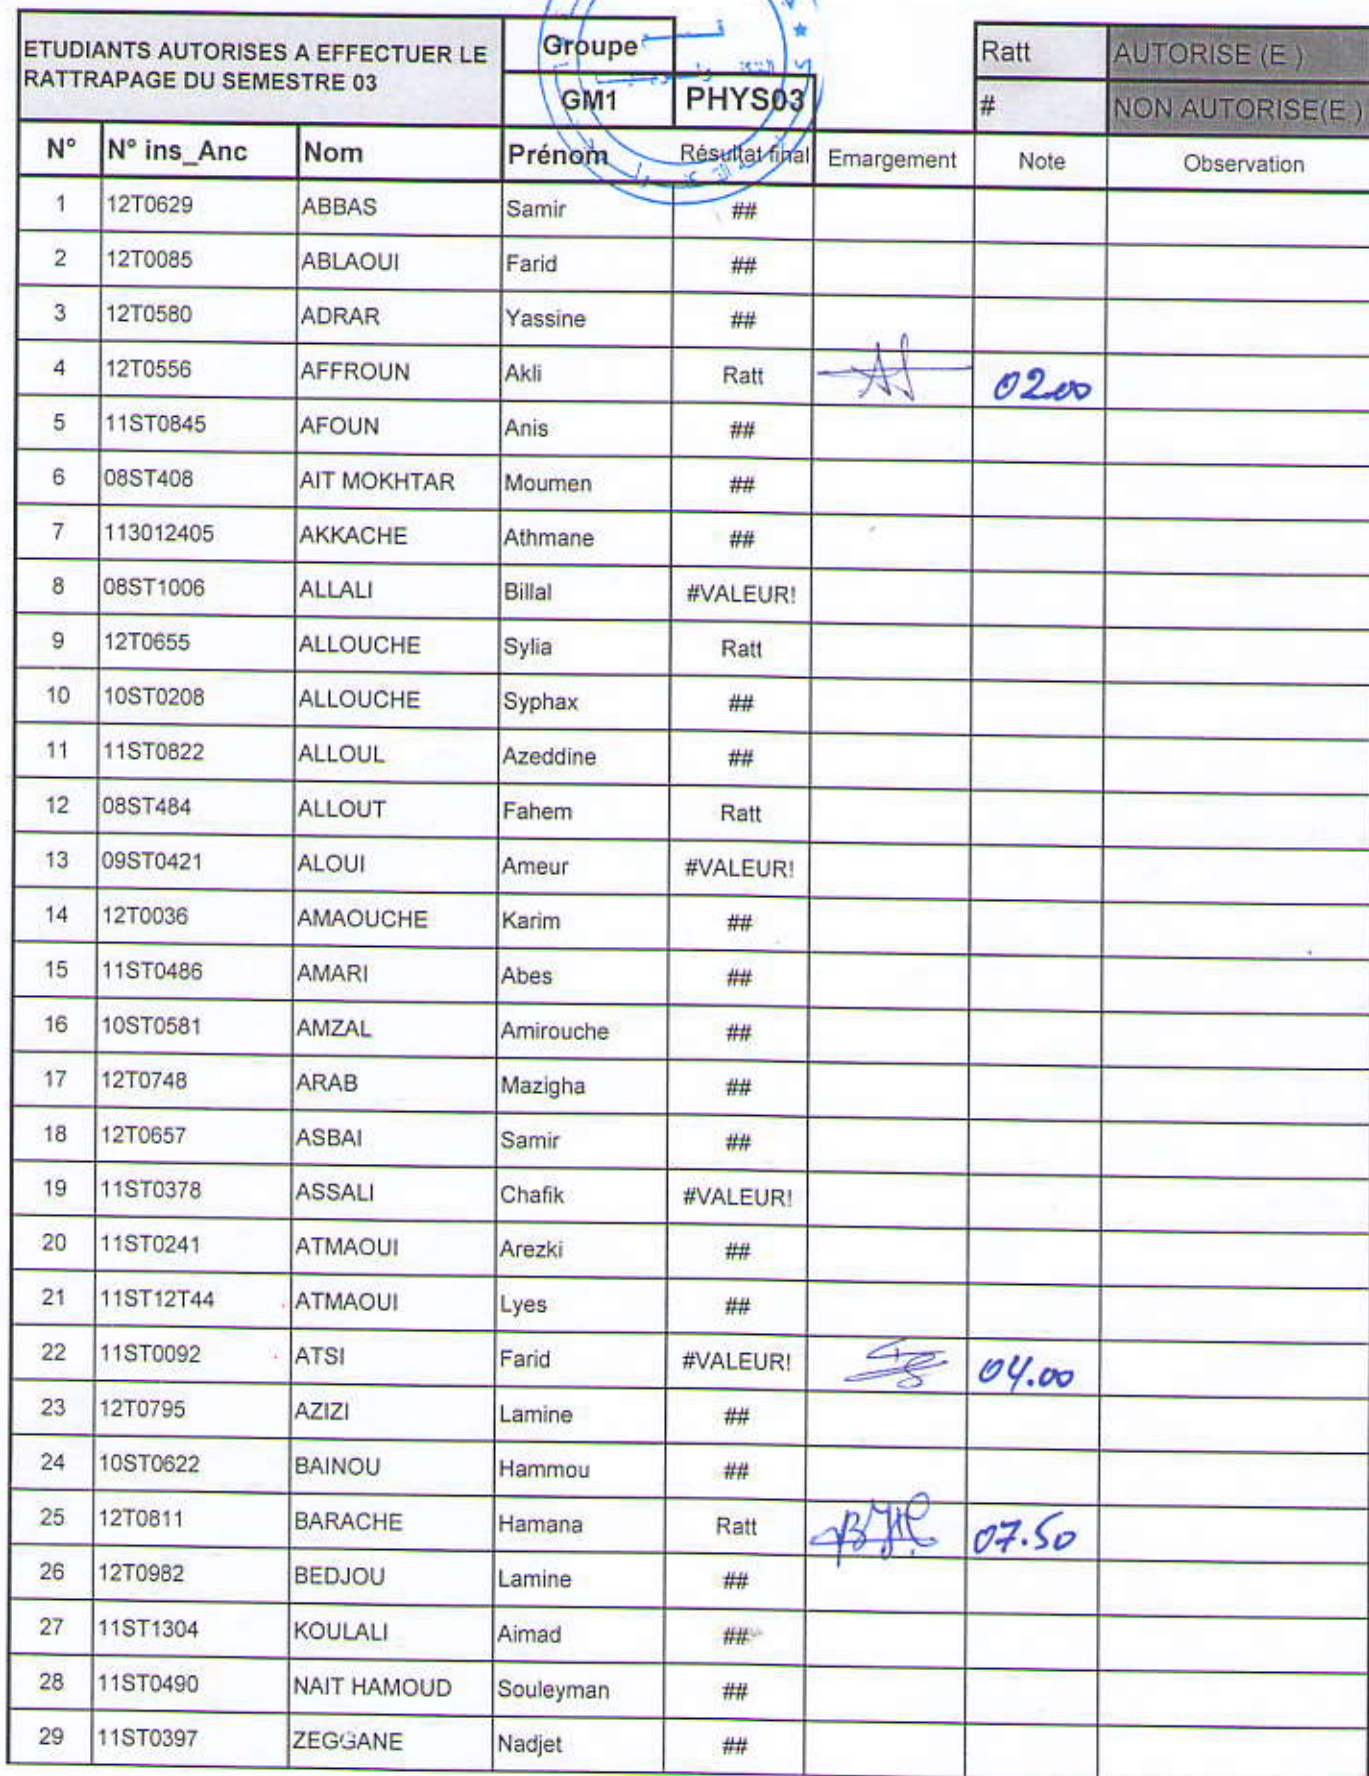 ETUDIANTS AUTORISES A EFFECTUER LE
RATTRAPAGE DU SEMESTRE 03
Groupe
GM1 PHYS03
Ratt AUTORISE (E )
# NON AUTORISE(E )
N° N° ins_Anc Nom Prénom Résultat final Emargement Note Observation
1 12T0629 ABBAS Samir ##
2 12T0085 ABLAOUI Farid ##
3 12T0580 ADRAR Yassine ##
4 12T0556 AFFROUN Akli Ratt 02.00
5 11ST0845 AFOUN Anis ##
6 08ST408 AIT MOKHTAR Moumen ##
7 113012405 AKKACHE Athmane ##
8 08ST1006 ALLALI Billal #VALEUR!
9 12T0655 ALLOUCHE Sylia Ratt
10 10ST0208 ALLOUCHE Syphax ##
11 11ST0822 ALLOUL Azeddine ##
12 08ST484 ALLOUT Fahem Ratt
13 09ST0421 ALOUI Ameur #VALEUR!
14 12T0036 AMAOUCHE Karim ##
15 11ST0486 AMARI Abes ##
16 10ST0581 AMZAL Amirouche ##
17 12T0748 ARAB Mazigha ##
18 12T0657 ASBAI Samir ##
19 11ST0378 ASSALI Chafik #VALEUR!
20 11ST0241 ATMAOUI Arezki ##
21 11ST12T44 ATMAOUI Lyes ##
22 11ST0092 ATSI Farid #VALEUR! 04.00
23 12T0795 AZIZI Lamine ##
24 10ST0622 BAINOU Hammou ##
25 12T0811 BARACHE Hamana Ratt 07.50
26 12T0982 BEDJOU Lamine ##
27 11ST1304 KOULALI Aimad ##
28 11ST0490 NAIT HAMOUD Souleyman ##
29 11ST0397 ZEGGANE Nadjet ##